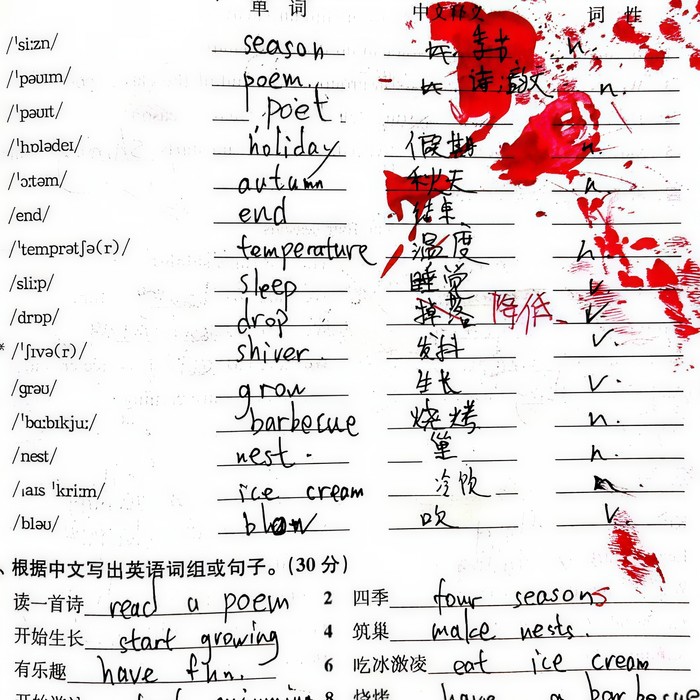 单 词 中文释义 词 性
/ˈsiːzn/ season 季节 n.
/ˈpəʊɪm/ poem. 诗 n.
/ˈpəʊɪt/ poet
/ˈhɒlədeɪ/ holiday 假期 n.
/ˈɔːtəm/ autumn 秋天 n.
/end/ end 结束
/ˈtemprətʃə(r)/ temperature 温度 n.
/sliːp/ sleep 睡觉 v.
/drɒp/ drop 掉落 降低 v.
* /ˈʃɪvə(r)/ shiver. 发抖 v.
/ɡrəʊ/ grow 生长 v.
/ˈbɑːbɪkjuː/ barbecue 烧烤 n.
/nest/ nest. 巢 n.
/ˌaɪs ˈkriːm/ ice cream 冷饮 n.
/bləʊ/ blow 吹 v.
、根据中文写出英语词组或句子。(30 分)
读一首诗 read a poem 2 四季 four seasons
开始生长 start growing 4 筑巢 make nests.
有乐趣 have fun. 6 吃冰激凌 eat ice cream
8 烧烤 have a barbecue